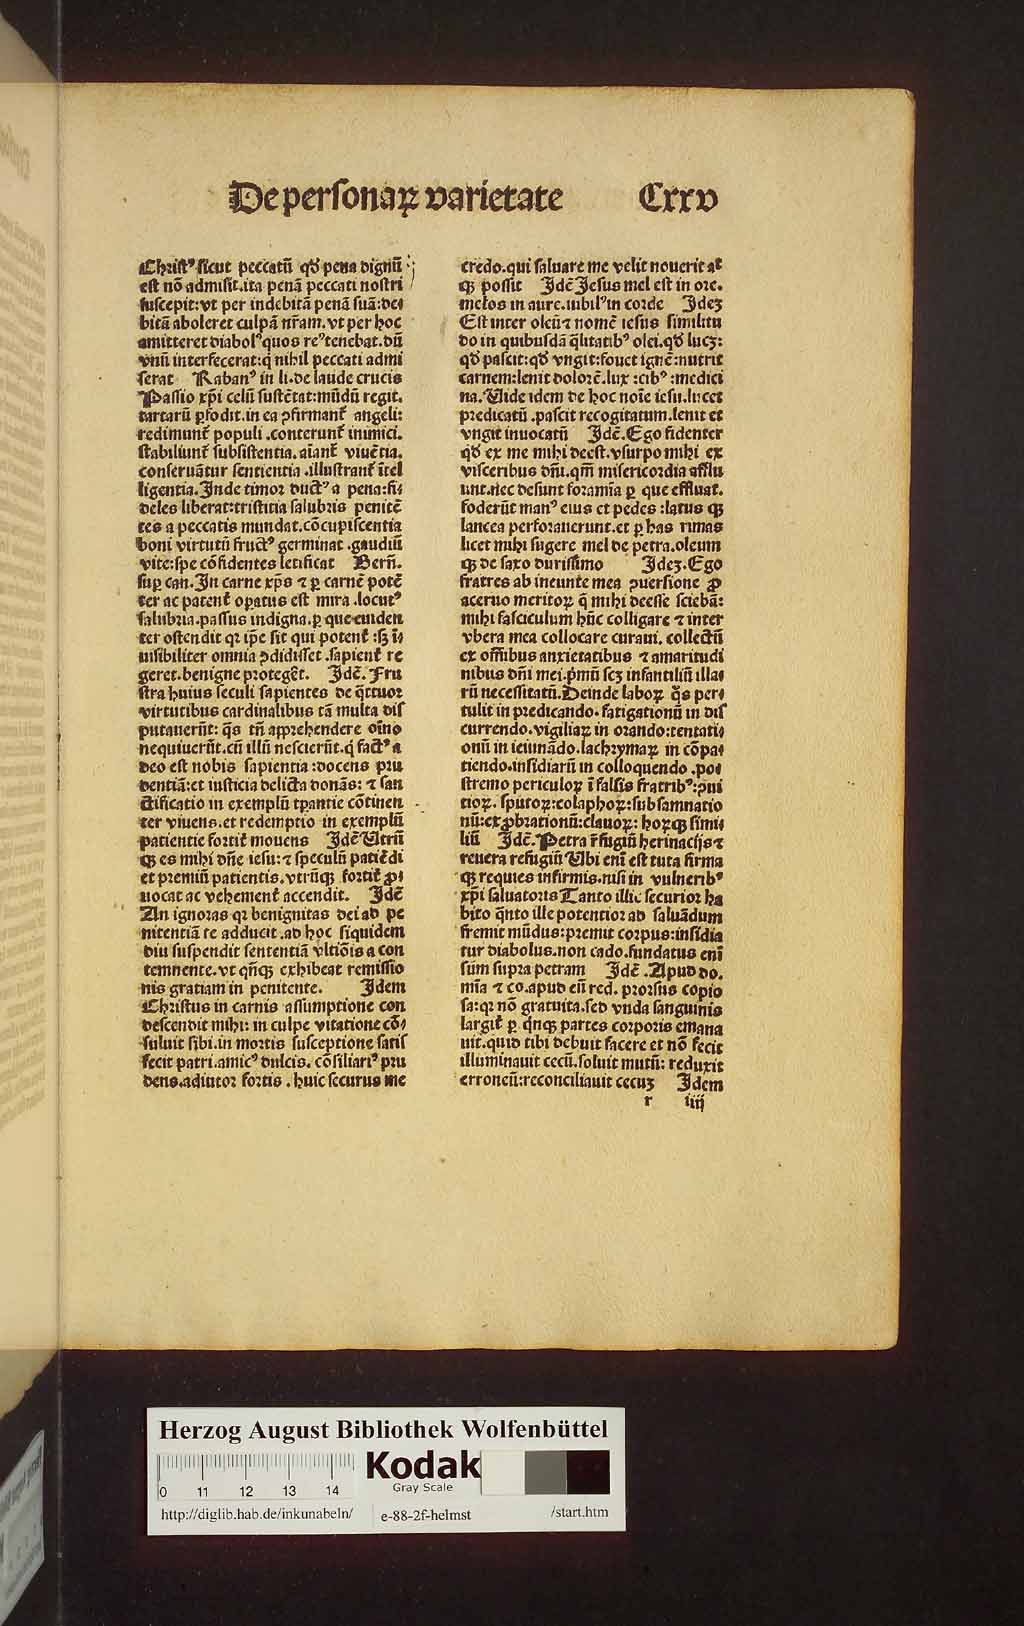 De personaꝝ varietate Cxxv
Christꝰ sicut peccatū qď pena dignū
est nō admisit.ita penā peccati nostri
suscepit:vt per indebitā penā suā:de-
bitā aboleret culpā nr̄am.vt per hoc
amitteret diabolꝰ quos reꝰ tenebat.dū
vnū interfecerat:q̄ nihil peccati admi
serat Rabanꝰ in li.de laude crucis
Passio xp̄i celū sustētat:mūdū regit.
tartarū ꝑfodit.in ea ꝯfirmant̄ angeli:
redimunt̄ populi .conterunt̄ inimici.
stabiliunt̄ subsistentia.aīant̄ viuētia.
conseruātur sentientia .illustrant̄ ītel
ligentia.Inde timor ductꝰ a pena:fi-
deles liberat:tristitia salubris penitē
tes a peccatis mundat.cōcupiscentia
boni virtutū fructꝰ germinat .gaudiū
vite:spe cōfidentes letificat Bern̄.
sup can.In carne xp̄s ⁊ ꝑ carnē potē
ter ac patent̄ oꝑatus est mira .locutꝰ
salubria.passus indigna.ꝑ que euiden
ter ostendit qꝛ ip̄e sit qui potent̄ :sꝫ ī-
uisibiliter omnia ꝯdidisset .sapient̄ re
geret.benigne protegēt. Idē. Fru
stra huius seculi sapientes de q̄ttuor
virtutibus cardinalibus tā multa dis
putauerūt: q̄s tn̄ apprehendere oīno
nequiuerūt.cū illū nescierūt.q̇ factꝰ a
deo est nobis sapientia :docens pru
dentiā:et iusticia delicta donās: ⁊ san
ctificatio in exemplū tpantie cōtinen
ter viuens.et redemptio in exemplū
patientie fortit̄ mouens Idē Utrū
qꝫ es mihi dn̄e iesu:⁊ speculū patiēdi
et premiū patientis.vtrūqꝫ fortit̄ ꝓ-
uocat ac vehement̄ accendit. Idē
An ignoras qꝛ benignitas dei ad pe
nitentiā te adducit .ad hoc siquidem
diu suspendit sententiā vltiōis a con
temnente.vt qn̄qꝫ exhibeat remissio
nis gratiam in penitente. Idem
Christus in carnis assumptione con
descendit mihi: in culpe vitatione cō-
suluit sibi.in mortis susceptione satis
fecit patri.amicꝰ dulcis. cōsiliariꝰ pru
dens.adiutor fortis . huic securus me
credo.qui saluare me velit nouerit at
qꝫ possit Idē Jesus mel est in ore.
melos in aure.iubilꝰ in corde Ideꝫ
Est inter oleū ⁊ nomē iesus similitu
do in quibusdā q̄litatibꝰ olei.qď lucꝫ:
qď pascit:qď vngit:fouet ignē:nutrit
carnem:lenit dolorē.lux :cibꝰ :medici
na.Uide idem de hoc noīe iesu.lucet
predicatū .pascit recogitatum.lenit et
vngit inuocatū Idē.Ego fidenter
qď ex me mihi deest.vsurpo mihi ex
visceribus dn̄i.qm̄ misericordia afflu
unt.nec desunt foramīa ꝑ que effluat.
foderūt manꝰ eius et pedes :latus qꝫ
lancea perforauerunt.et ꝑ has rimas
licet mihi sugere mel de petra.oleum
qꝫ de saxo durissimo Ideꝫ.Ego
fratres ab ineunte mea ꝯuersione ꝓ
aceruo meritoꝝ q̄ mihi deesse sciebā:
mihi fasciculum hūc colligare ⁊ inter
vbera mea collocare curaui. collectū
ex om̄ibus anxietatibus ⁊ amaritudi
nibus dn̄i mei.pͥmū scꝫ infantiliū illa-
rū necessitatū.Deinde laboꝝ q̄s per-
tulit in predicando.fatigationū in dis
currendo.vigiliaꝝ in orando:tentati-
onū in ieiunādo.lachrymaꝝ in cōpa-
tiendo.insidiarū in colloquendo .po-
stremo periculoꝝ ī falsis fratribꝰ:ꝯui
tioꝝ. sputoꝝ:colaphoꝝ:subsannatio
nū:exꝓbrationū:clauoꝝ: hoꝝqꝫ simi-
liū Idē.Petra r̄fugiū herinacijs ⁊
reuera refugiū Ubi enī est tuta firma
qꝫ requies infirmis.nisi in vulneribꝰ
xp̄i saluatoris Tanto illic securior ha
bito q̄nto ille potentior ad saluādum
fremit mūdus:premit corpus:insidia
tur diabolus.non cado.fundatus enī
sum supra petram Idē .Apud do.
mīa ⁊ co.apud eū red. prorsus copio
sa:qꝛ nō gratuita.sed vnda sanguinis
largit̄ ꝑ qͥnqꝫ partes corporis emana
uit.quid tibi debuit facere et nō fecit
illuminauit cecū.soluit mutū: reduxit
erroneū:reconciliauit cecuꝫ Idem
r iiij
Herzog August Bibliothek Wolfenbüttel
0 11 12 13 14
Kodak
Gray Scale
http://diglib.hab.de/inkunabeln/ e-88-2f-helmst /start.htm